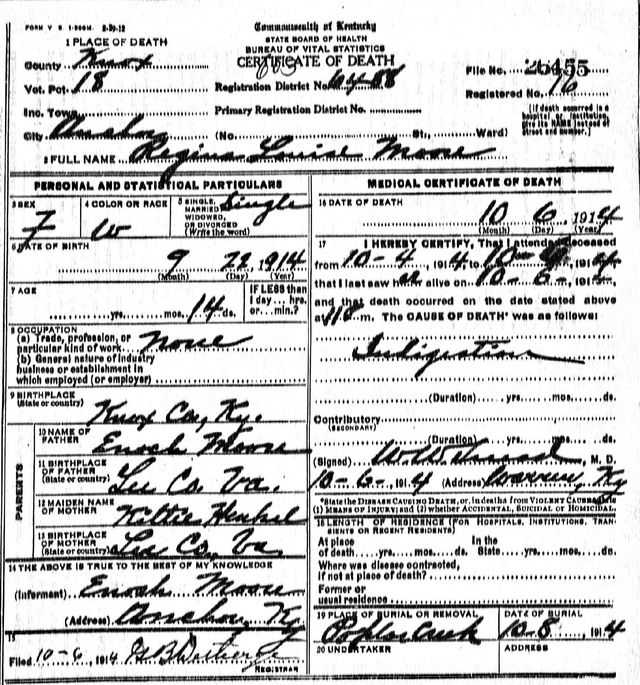 FORM V. S. 1-500M. 2-29-12
Commonwealth of Kentucky
STATE BOARD OF HEALTH
BUREAU OF VITAL STATISTICS
CERTIFICATE OF DEATH
1 PLACE OF DEATH
County Knox
Vot. Pct. 18
Registration District No. 6488
File No. 26455
Registered No. 16
Inc. Town
Primary Registration District No.
[If death occurred in a hospital or institution, give its NAME instead of street and number.]
City Anchor (No. St., Ward)
2 FULL NAME Regina Louise Moore
PERSONAL AND STATISTICAL PARTICULARS
3 SEX F
4 COLOR OR RACE W
5 SINGLE, MARRIED, WIDOWED, OR DIVORCED (Write the word) Single
6 DATE OF BIRTH
9 22, 1914
(Month) (Day) (Year)
7 AGE
yrs. mos. 14 ds.
IF LESS than 1 day... hrs. or... min.?
8 OCCUPATION
(a) Trade, profession, or particular kind of work None
(b) General nature of industry
business or establishment in
which employed (or employer)
9 BIRTHPLACE
(State or country) Knox Co, Ky.
PARENTS
10 NAME OF FATHER Enoch Moore
11 BIRTHPLACE OF FATHER (State or country) Lee Co. Va.
12 MAIDEN NAME OF MOTHER Kittie Henkel
13 BIRTHPLACE OF MOTHER (State or country) Lee Co, Va
14 THE ABOVE IS TRUE TO THE BEST OF MY KNOWLEDGE
(Informant) Enoch Moore
(Address) Anchor, Ky
15
Filed 10-6, 1914
REGISTRAR
MEDICAL CERTIFICATE OF DEATH
16 DATE OF DEATH
10 6, 1914
(Month) (Day) (Year)
17 I HEREBY CERTIFY, That I attended deceased
from 10-4, 1914, to 10, 1914,
that I last saw her alive on 10-6-, 1914,
and that death occurred on the date stated above
at m. The CAUSE OF DEATH* was as follows:
Indigestion
(Duration) yrs. mos. ds.
Contributory
(SECONDARY)
(Duration) yrs. mos. ds.
(Signed) W.W. M. D.
10-6-, 1914 (Address) Warren, Ky
*State the DISEASE CAUSING DEATH, or, in deaths from VIOLENT CAUSES, state
(1) MEANS OF INJURY; and (2) whether ACCIDENTAL, SUICIDAL or HOMICIDAL.
18 LENGTH OF RESIDENCE (FOR HOSPITALS, INSTITUTIONS, TRANSIENTS OR RECENT RESIDENTS)
At place of death yrs. mos. ds. In the State yrs. mos. ds.
Where was disease contracted,
if not at place of death?
Former or
usual residence
19 PLACE OF BURIAL OR REMOVAL Poplar Creek
DATE OF BURIAL 10-8, 1914
20 UNDERTAKER
ADDRESS